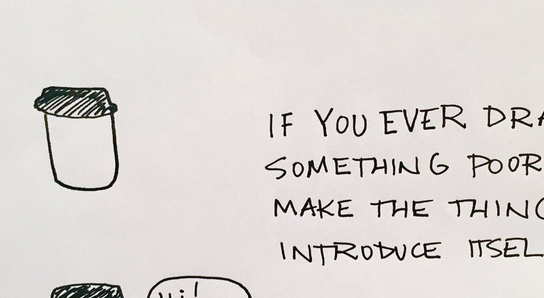 IF YOU EVER DRA
SOMETHING POOR
MAKE THE THING
INTRODUCE ITSEL
Hi!